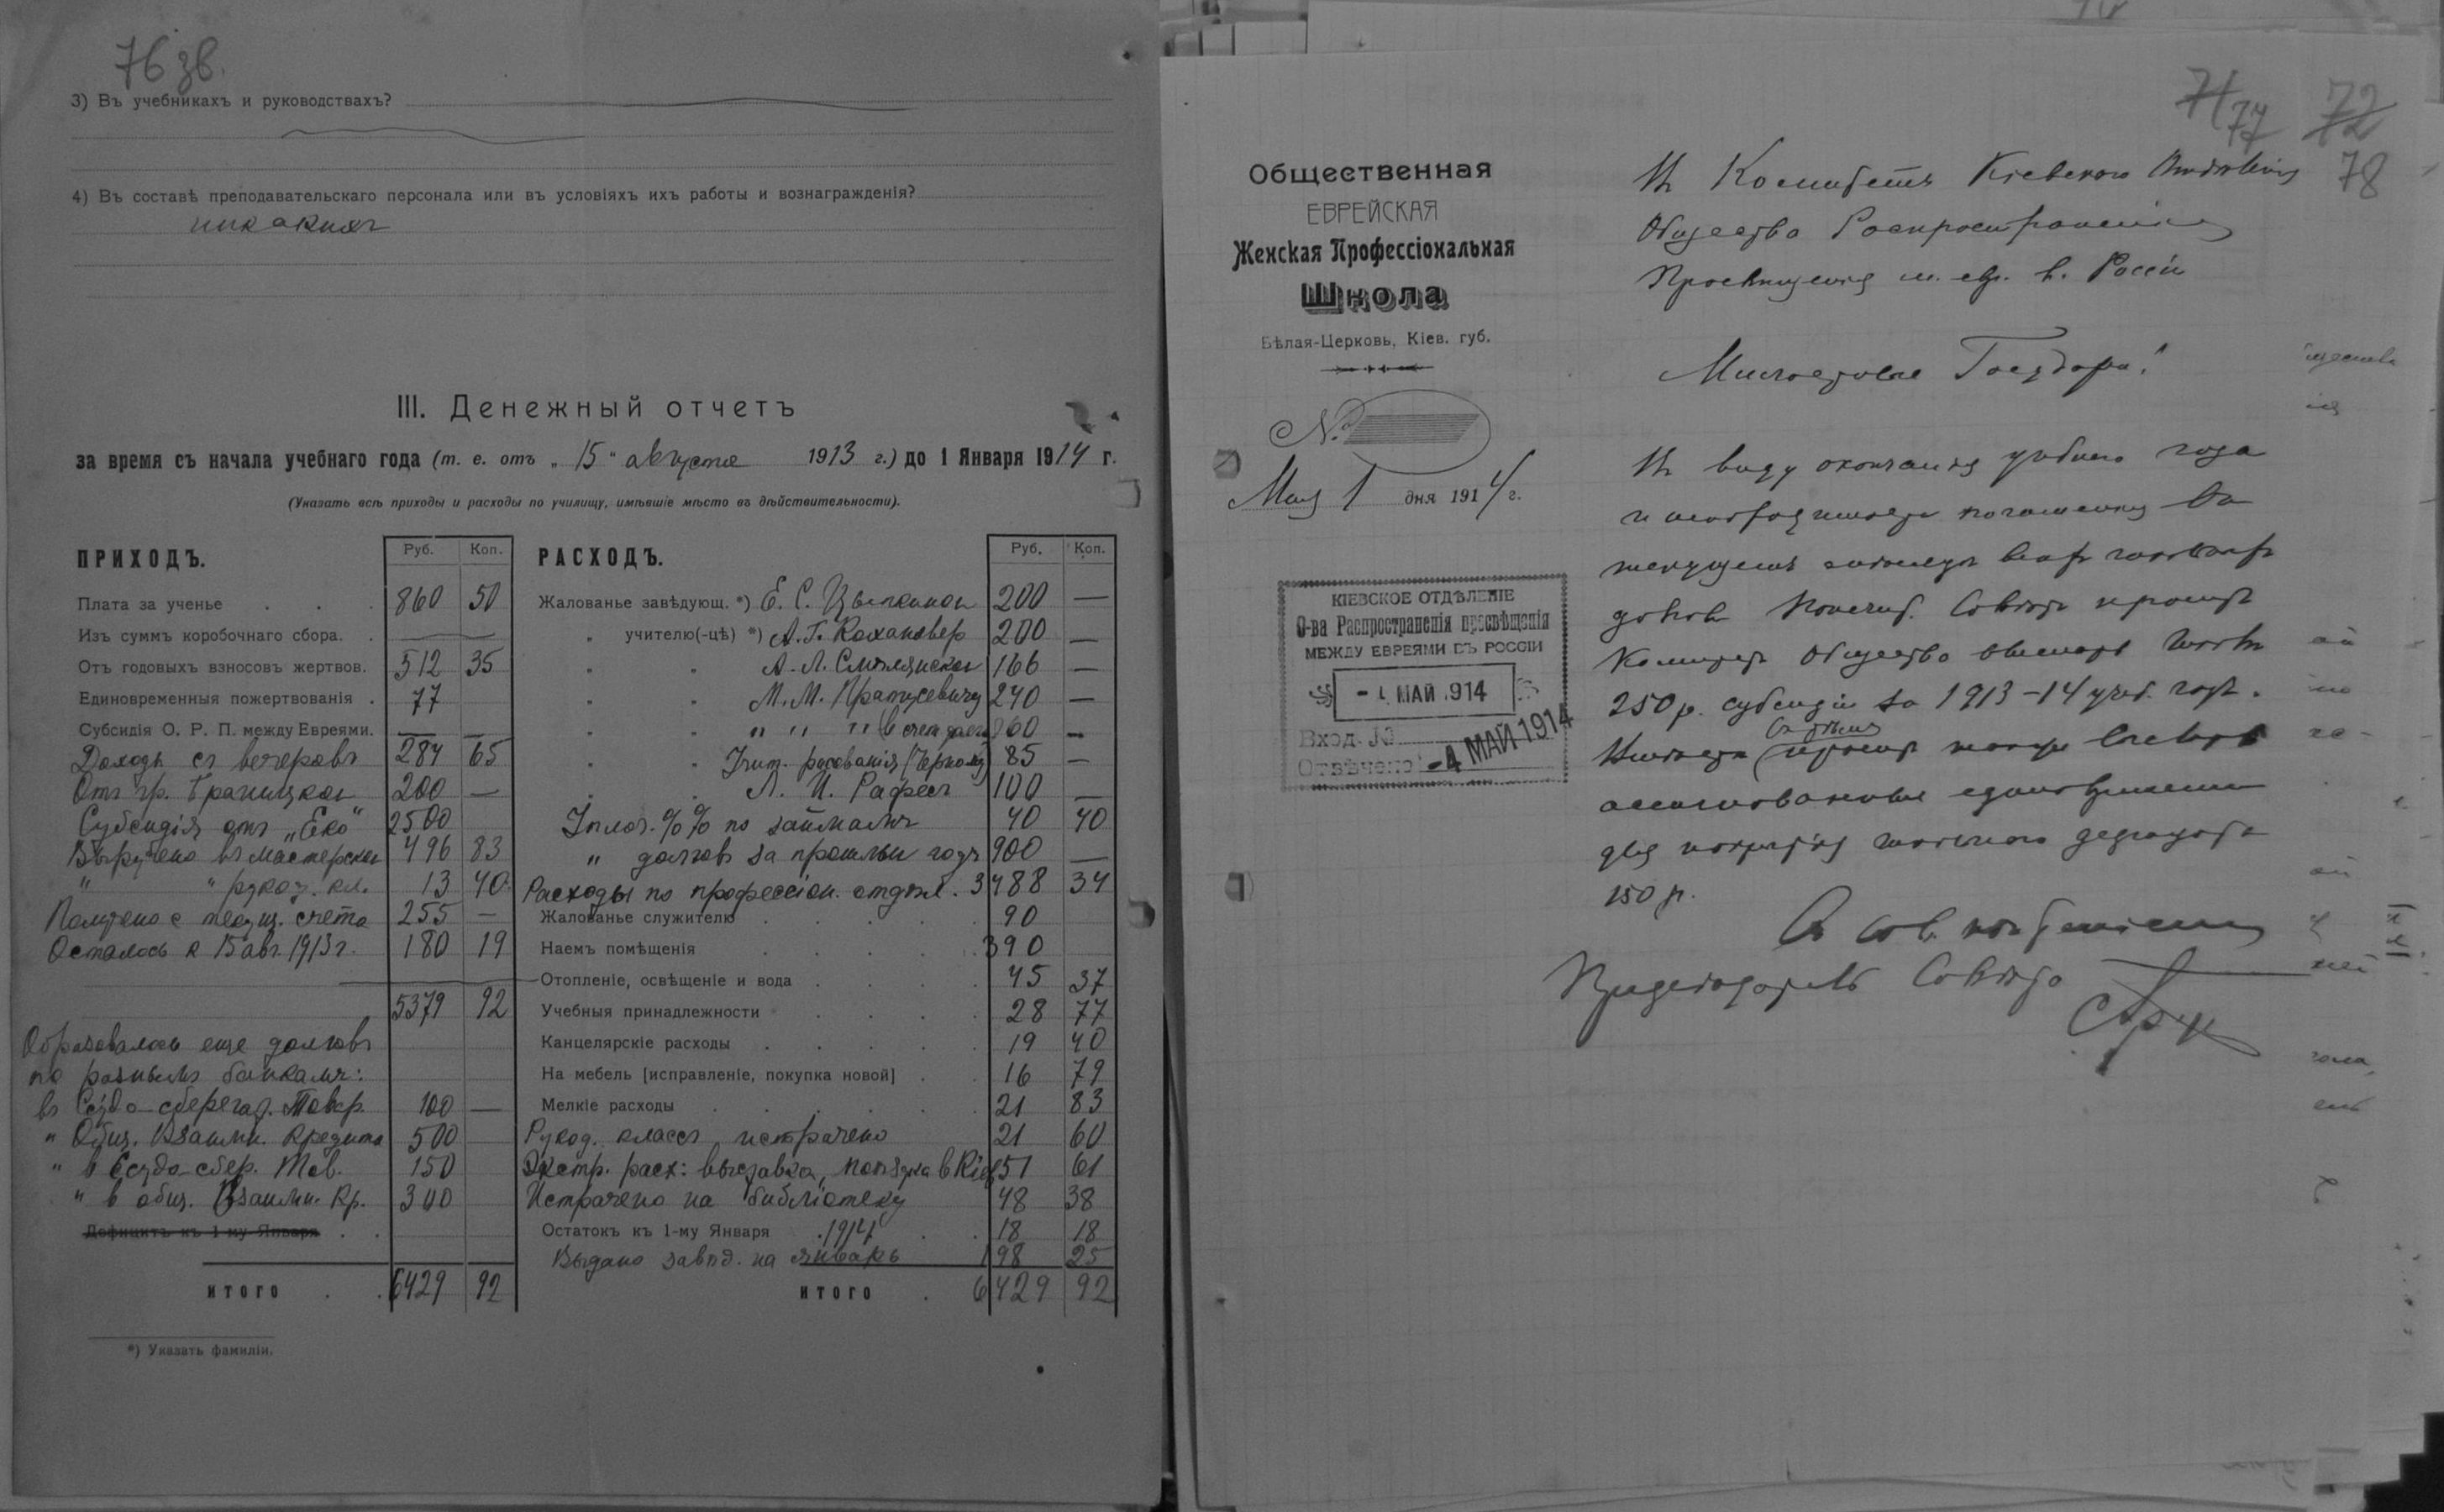 76 зв.
3) Въ учебникахъ и руководствахъ?
4) Въ составѣ преподавательскаго персонала или въ условіяхъ ихъ работы и вознагражденія?
никакихъ
III. Денежный отчетъ
за время съ начала учебнаго года (т. е. отъ „15" августа 1913 г.) до 1 Января 1914 г.
(Указать всѣ приходы и расходы по училищу, имѣвшіе мѣсто въ дѣйствительности).
ПРИХОДЪ. Руб. Коп.
Плата за ученье . . . 860 50
Изъ суммъ коробочнаго сбора. . —
Отъ годовыхъ взносовъ жертвов. 512 35
Единовременныя пожертвованія . 77
Субсидія О. Р. П. между Евреями. — —
Доходъ съ вечеровъ 284 65
Отъ гр. Браницкой 200 —
Субсидія отъ „Еко" 2500
Выручено въ мастерской 496 83
" " рукод. кл. 13 40
Получено с текущ. счета 255 —
Осталось к 15 авг. 1913 г. 180 19
5379 92
Образовалось еще долговъ
по разнымъ банкамъ:
въ Ссудо-сберегат. Товар. 100 —
" Общ. Взаимн. Кредита 500
" в Ссудо-сбер. Тов. 150
" в общ. Взаимн. Кр. 300
Дефицитъ къ 1-му Января . .
ИТОГО . . 6429 92
*) Указать фамиліи.
РАСХОДЪ. Руб. Коп.
Жалованье завѣдующ. *) Е. С. 200 —
" учителю(-цѣ) *) А. Г. 200 —
" " А. Л. Смѣлянской 166 —
" " М. М. 240 —
" " " " " в счет 60 —
" " Учит. рисованія 85 —
" " Л. И. 100 —
Уплоч. %% по займамъ 40 40
" долговъ за прошлый годъ 900 —
Расходы по профессіон. отдѣл. 3488 34
Жалованье служителю . . . . 90
Наемъ помѣщенія . . . . . 390
Отопленіе, освѣщеніе и вода . . . . 45 37
Учебныя принадлежности . . . . 28 77
Канцелярскіе расходы . . . . . 19 40
На мебель [исправленіе, покупка новой] . . 16 79
Мелкіе расходы . . . . . . 21 83
Рукод. классъ истрачено 21 60
Экстр. расх: выставка, поѣздка в Кіев 51 61
Истрачено на библіотеку 48 38
Остатокъ къ 1-му Января 1914 . . 18 18
Выдано завѣд. на январь 198 25
ИТОГО . 6429 92
71 77 72
78
Общественная
ЕВРЕЙСКАЯ
Женская Профессіональная
Школа
Бѣлая-Церковь, Кіев. губ.
№
Мая 1 дня 1914 г.
КІЕВСКОЕ ОТДѢЛЕНІЕ
О-ва Распространенія просвѣщенія
МЕЖДУ ЕВРЕЯМИ ВЪ РОССІИ
МАЙ 1914
Вход. №
Отвѣчено -4 МАЙ 1914
В Комитетъ Кіевского Отдѣленія
Общества Распространенія
Просвѣщенія м. евр. в. Россіи
Милостивые Государи!
В виду окончанія учебного года
и необходимости погашенія
текущемъ
долгов Попечит. Совѣтъ просит
Комитет Общества выслать
250 р. субсидіи за 1913-14 учеб. год.
просит также
ассигнованные единовременно
для покрытія школьного дефицита
150 р.
С сов. почтеніем
Предсѣдатель Совѣта